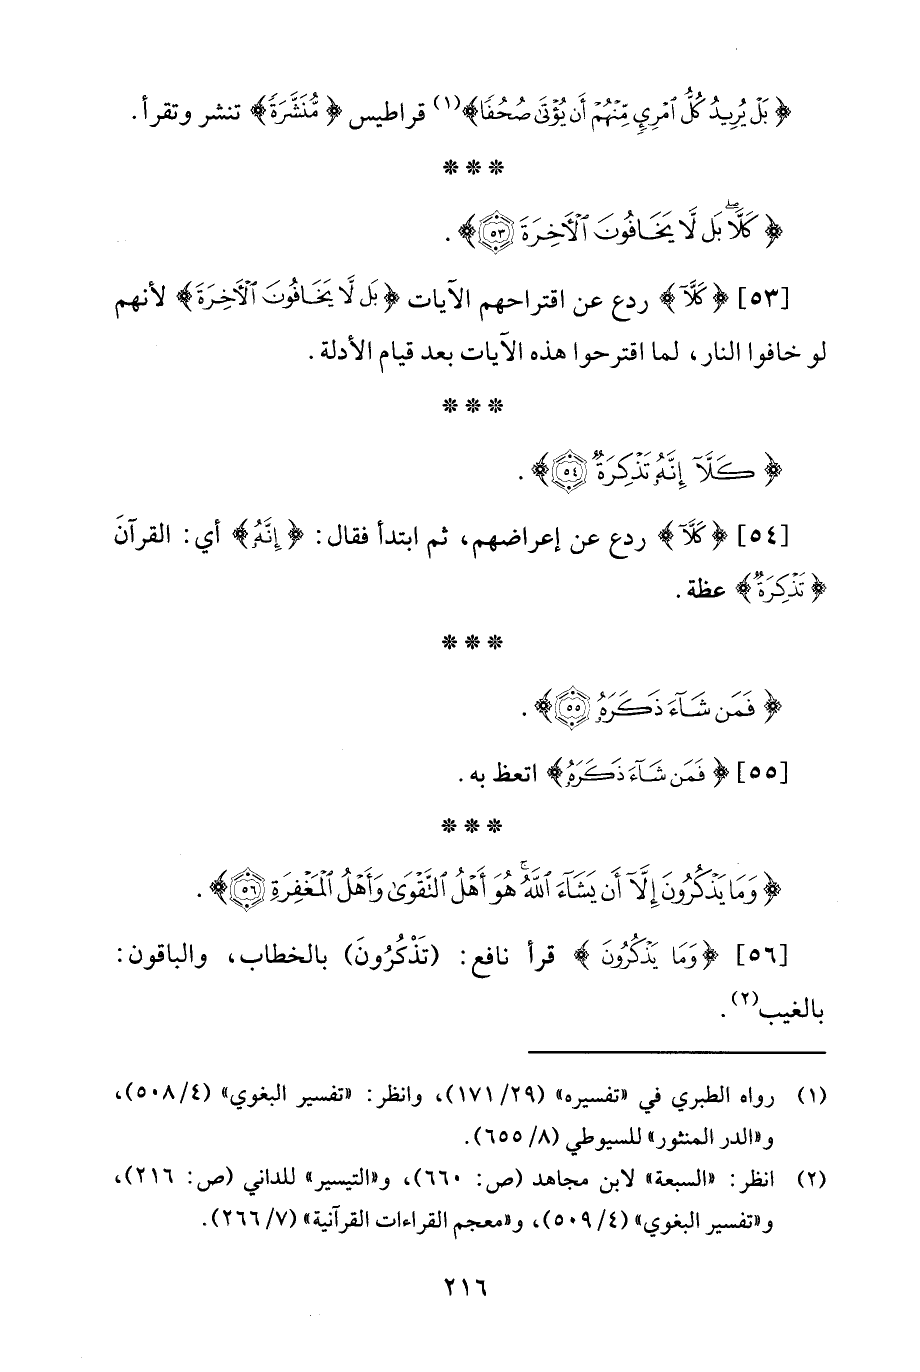 ﴿ بَلْ يُرِيدُ كُلُّ ٱمْرِئٍ مِّنْهُمْ أَن يُؤْتَىٰ صُحُفًا﴾(١) قراطيس ﴿ مُّنَشَّرَةً﴾ تنشر وتقرأ.
* * *
﴿ كَلَّاۖ بَل لَّا يَخَافُونَ ٱلْأَخِرَةَ ٥٣﴾.
[٥٣] ﴿ كَلَّآ﴾ ردع عن اقتراحهم الآيات ﴿بَل لَّا يَخَافُونَ ٱلْأَخِرَةَ﴾ لأنهم
لو خافوا النار، لما اقترحوا هذه الآيات بعد قيام الأدلة.
* * *
﴿ كَلَّآ إِنَّهُۥ تَذْكِرَةٌ ٥٤﴾.
[٥٤] ﴿ كَلَّآ﴾ ردع عن إعراضهم، ثم ابتدأ فقال: ﴿ إِنَّهُۥ﴾ أي: القرآنَ
﴿ تَذْكِرَةٌ﴾ عظة.
* * *
﴿ فَمَن شَآءَ ذَكَرَهُۥ ٥٥﴾.
[٥٥] ﴿ فَمَن شَآءَ ذَكَرَهُۥ﴾ اتعظ به.
* * *
﴿ وَمَا يَذْكُرُونَ إِلَّآ أَن يَشَآءَ ٱللَّهُۚ هُوَ أَهْلُ ٱلتَّقْوَىٰ وَأَهْلُ ٱلْمَغْفِرَةِ ٥٦﴾.
[٥٦] ﴿وَمَا يَذْكُرُونَ ﴾ قرأ نافع: (تَذْكُرُونَ) بالخطاب، والباقون:
بالغيب(٢).
(١) رواه الطبري في «تفسيره» (٢٩/ ١٧١)، وانظر: «تفسير البغوي» (٤/ ٥٠٨)،
و«الدر المنثور» للسيوطي (٨/ ٦٥٥).
(٢) انظر: «السبعة» لابن مجاهد (ص: ٦٦٠)، و«التيسير» للداني (ص: ٢١٦)،
و«تفسير البغوي» (٤/ ٥٠٩)، و«معجم القراءات القرآنية» (٧/ ٢٦٦).
٢١٦